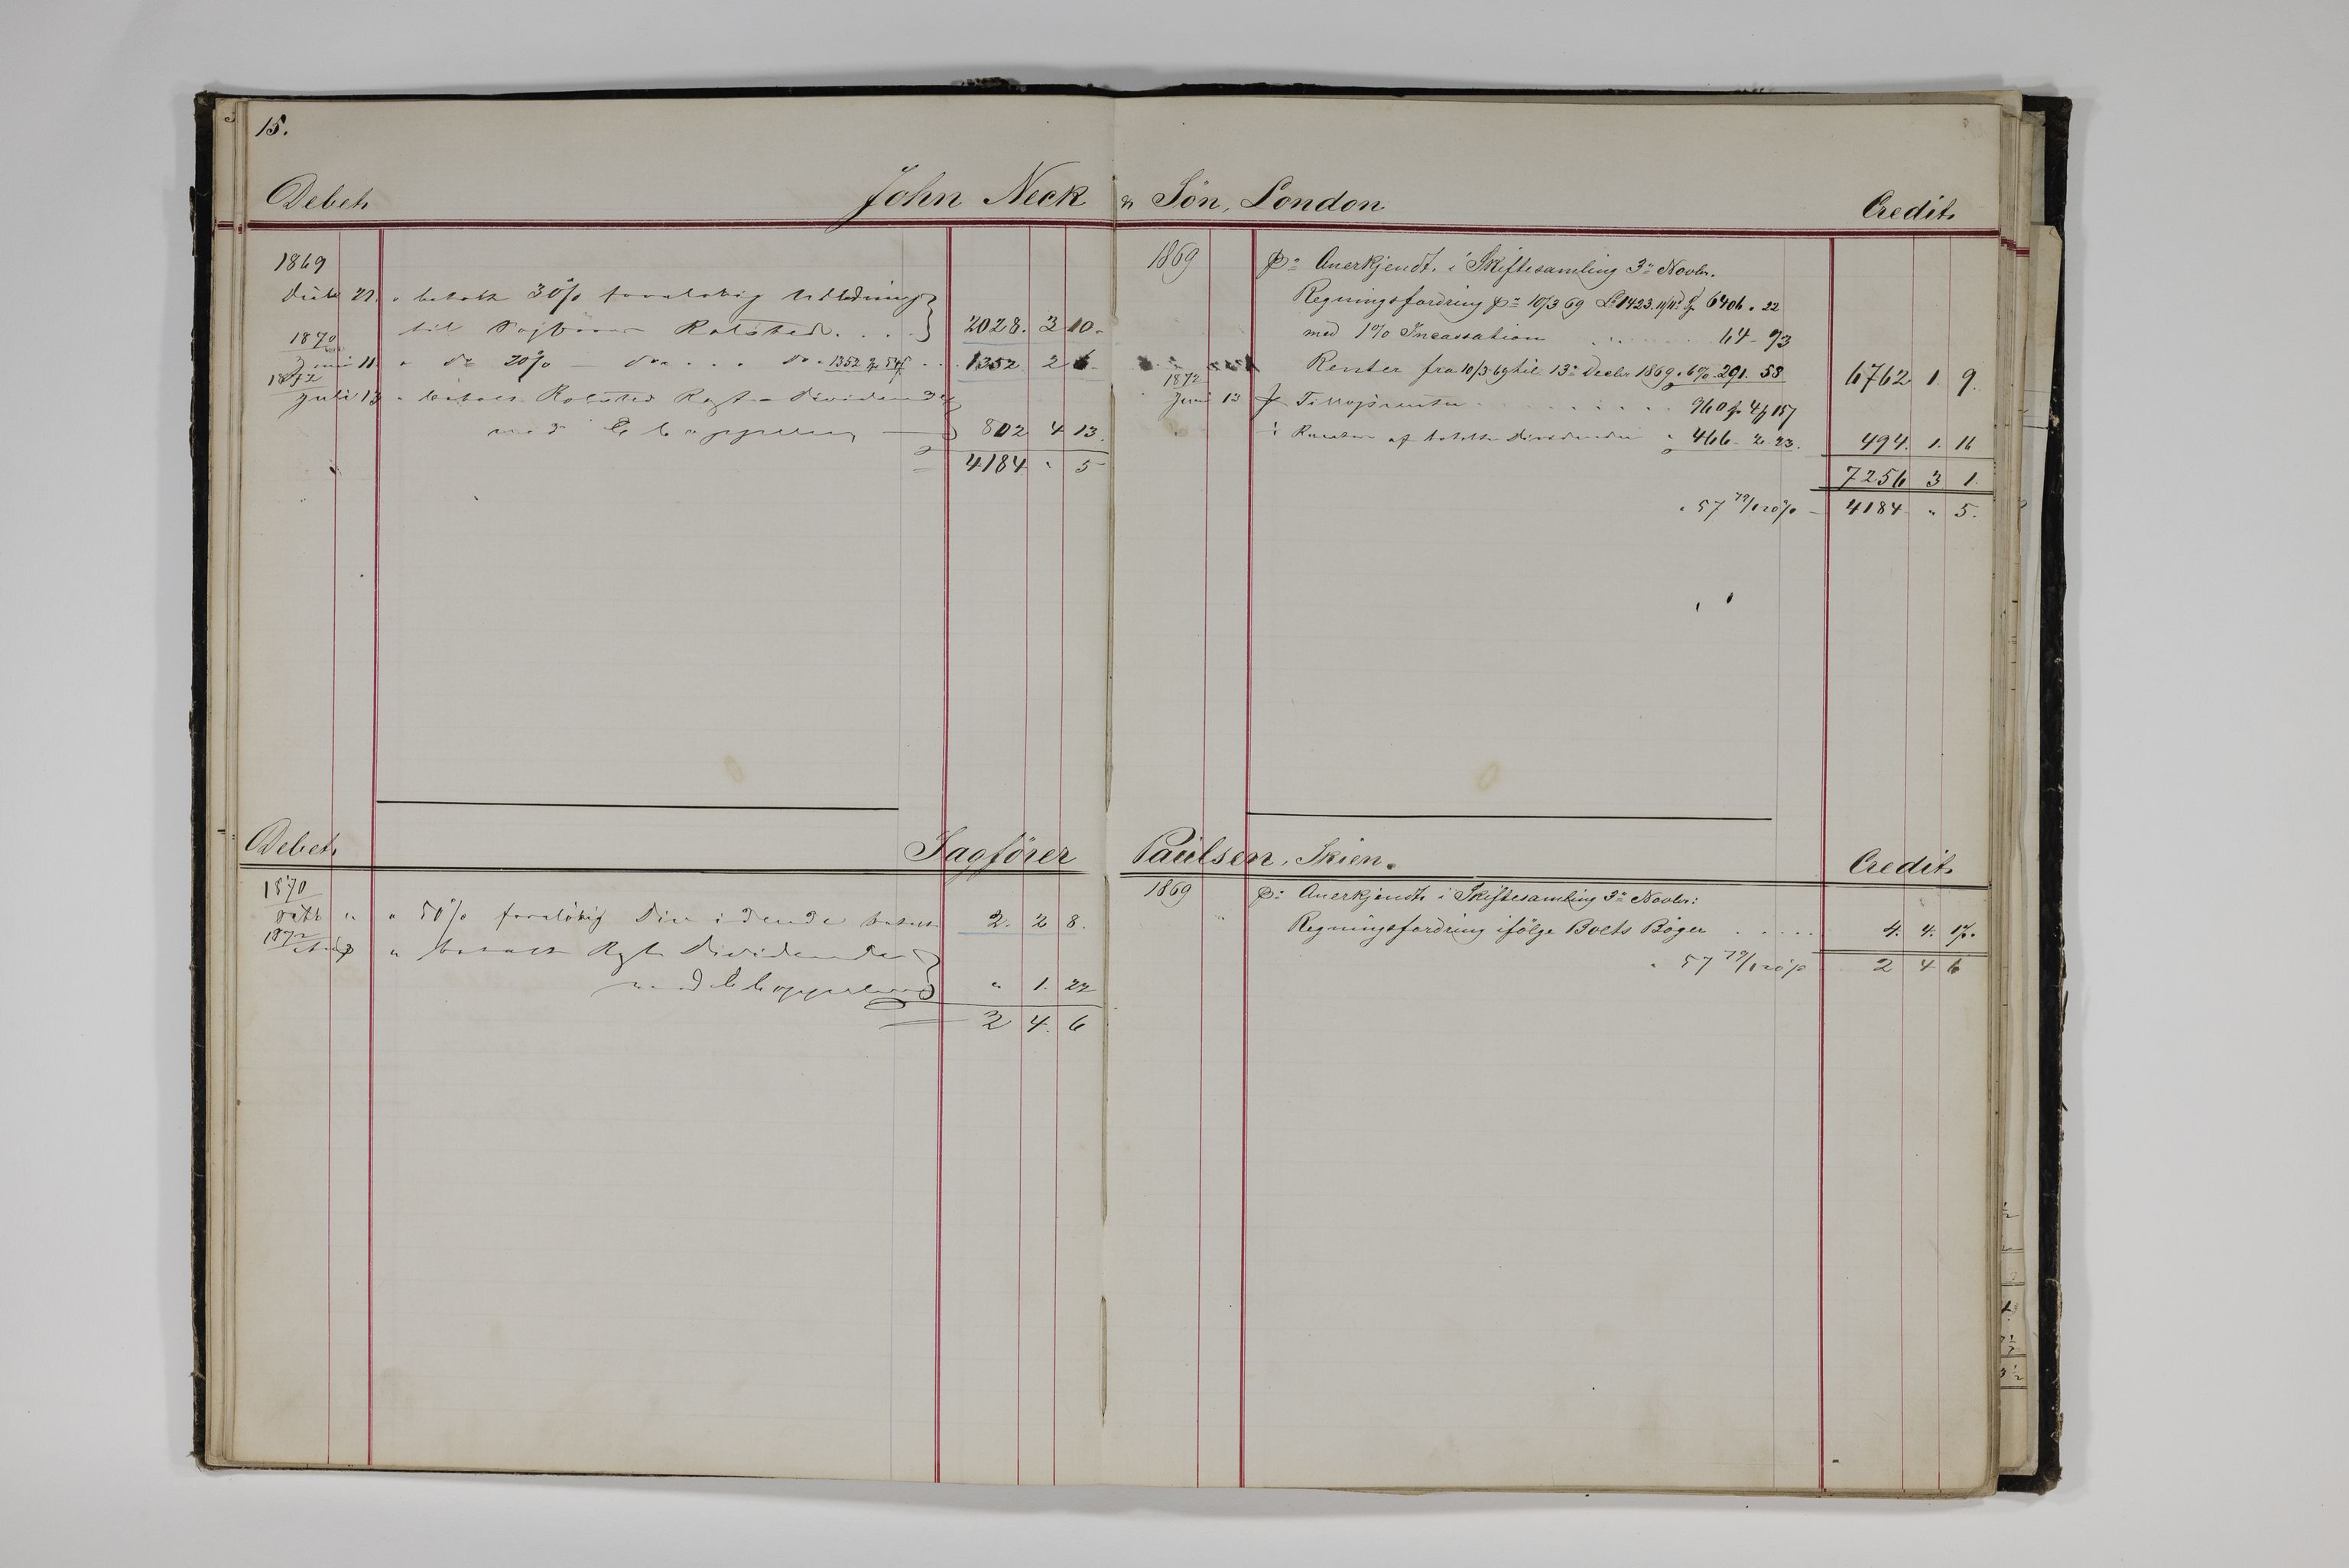 15.
Debet. John Neck & Sön, London Credit.
1869
Decbr 21. " betalt 30% foreløbig Uddeling
til Sagförer Rolsted . . . 2028. 3 10.
1870
Juni 11. " do 20% — do . . . do 1352 . . 1352 2 6.
1872
Juli 13 " betalt Rolsted Rest-Dividende
med 802 4 13.
4184 " 5
1869 pr Anerkjendt i Skiftesamling 3e Novbr.
Regningsfordring pr 10/3 69 £ 1423. 6406 . 22
med 1% Incassation . . . . . 64 - 93
Renter fra 10/3 69 til 13e Decbr 1869 . 6% . 291. 58 6762 1. 9.
1872
Juni 13 . . . . . . . 960 4 15
÷ Renter af betalte Dividender " 466 - 2. 23. 494. 1. 16
7256 3 1.
" 57 79/120% — 4184 " 5.
Debet. Sagförer Paulsen, Skien. Credit.
1870
" " 50% foreløbig Dividende betalt 2. 2 8.
1872
" betalt Rest Dividende
med " 1. 22
2 4. 6
1869 pr Anerkjendt i Skiftesamling 3e Novbr:
Regningsfordring ifölge Boets Böger . . . . . 4. 4. 17.
" 57 79/120% 2 4 6